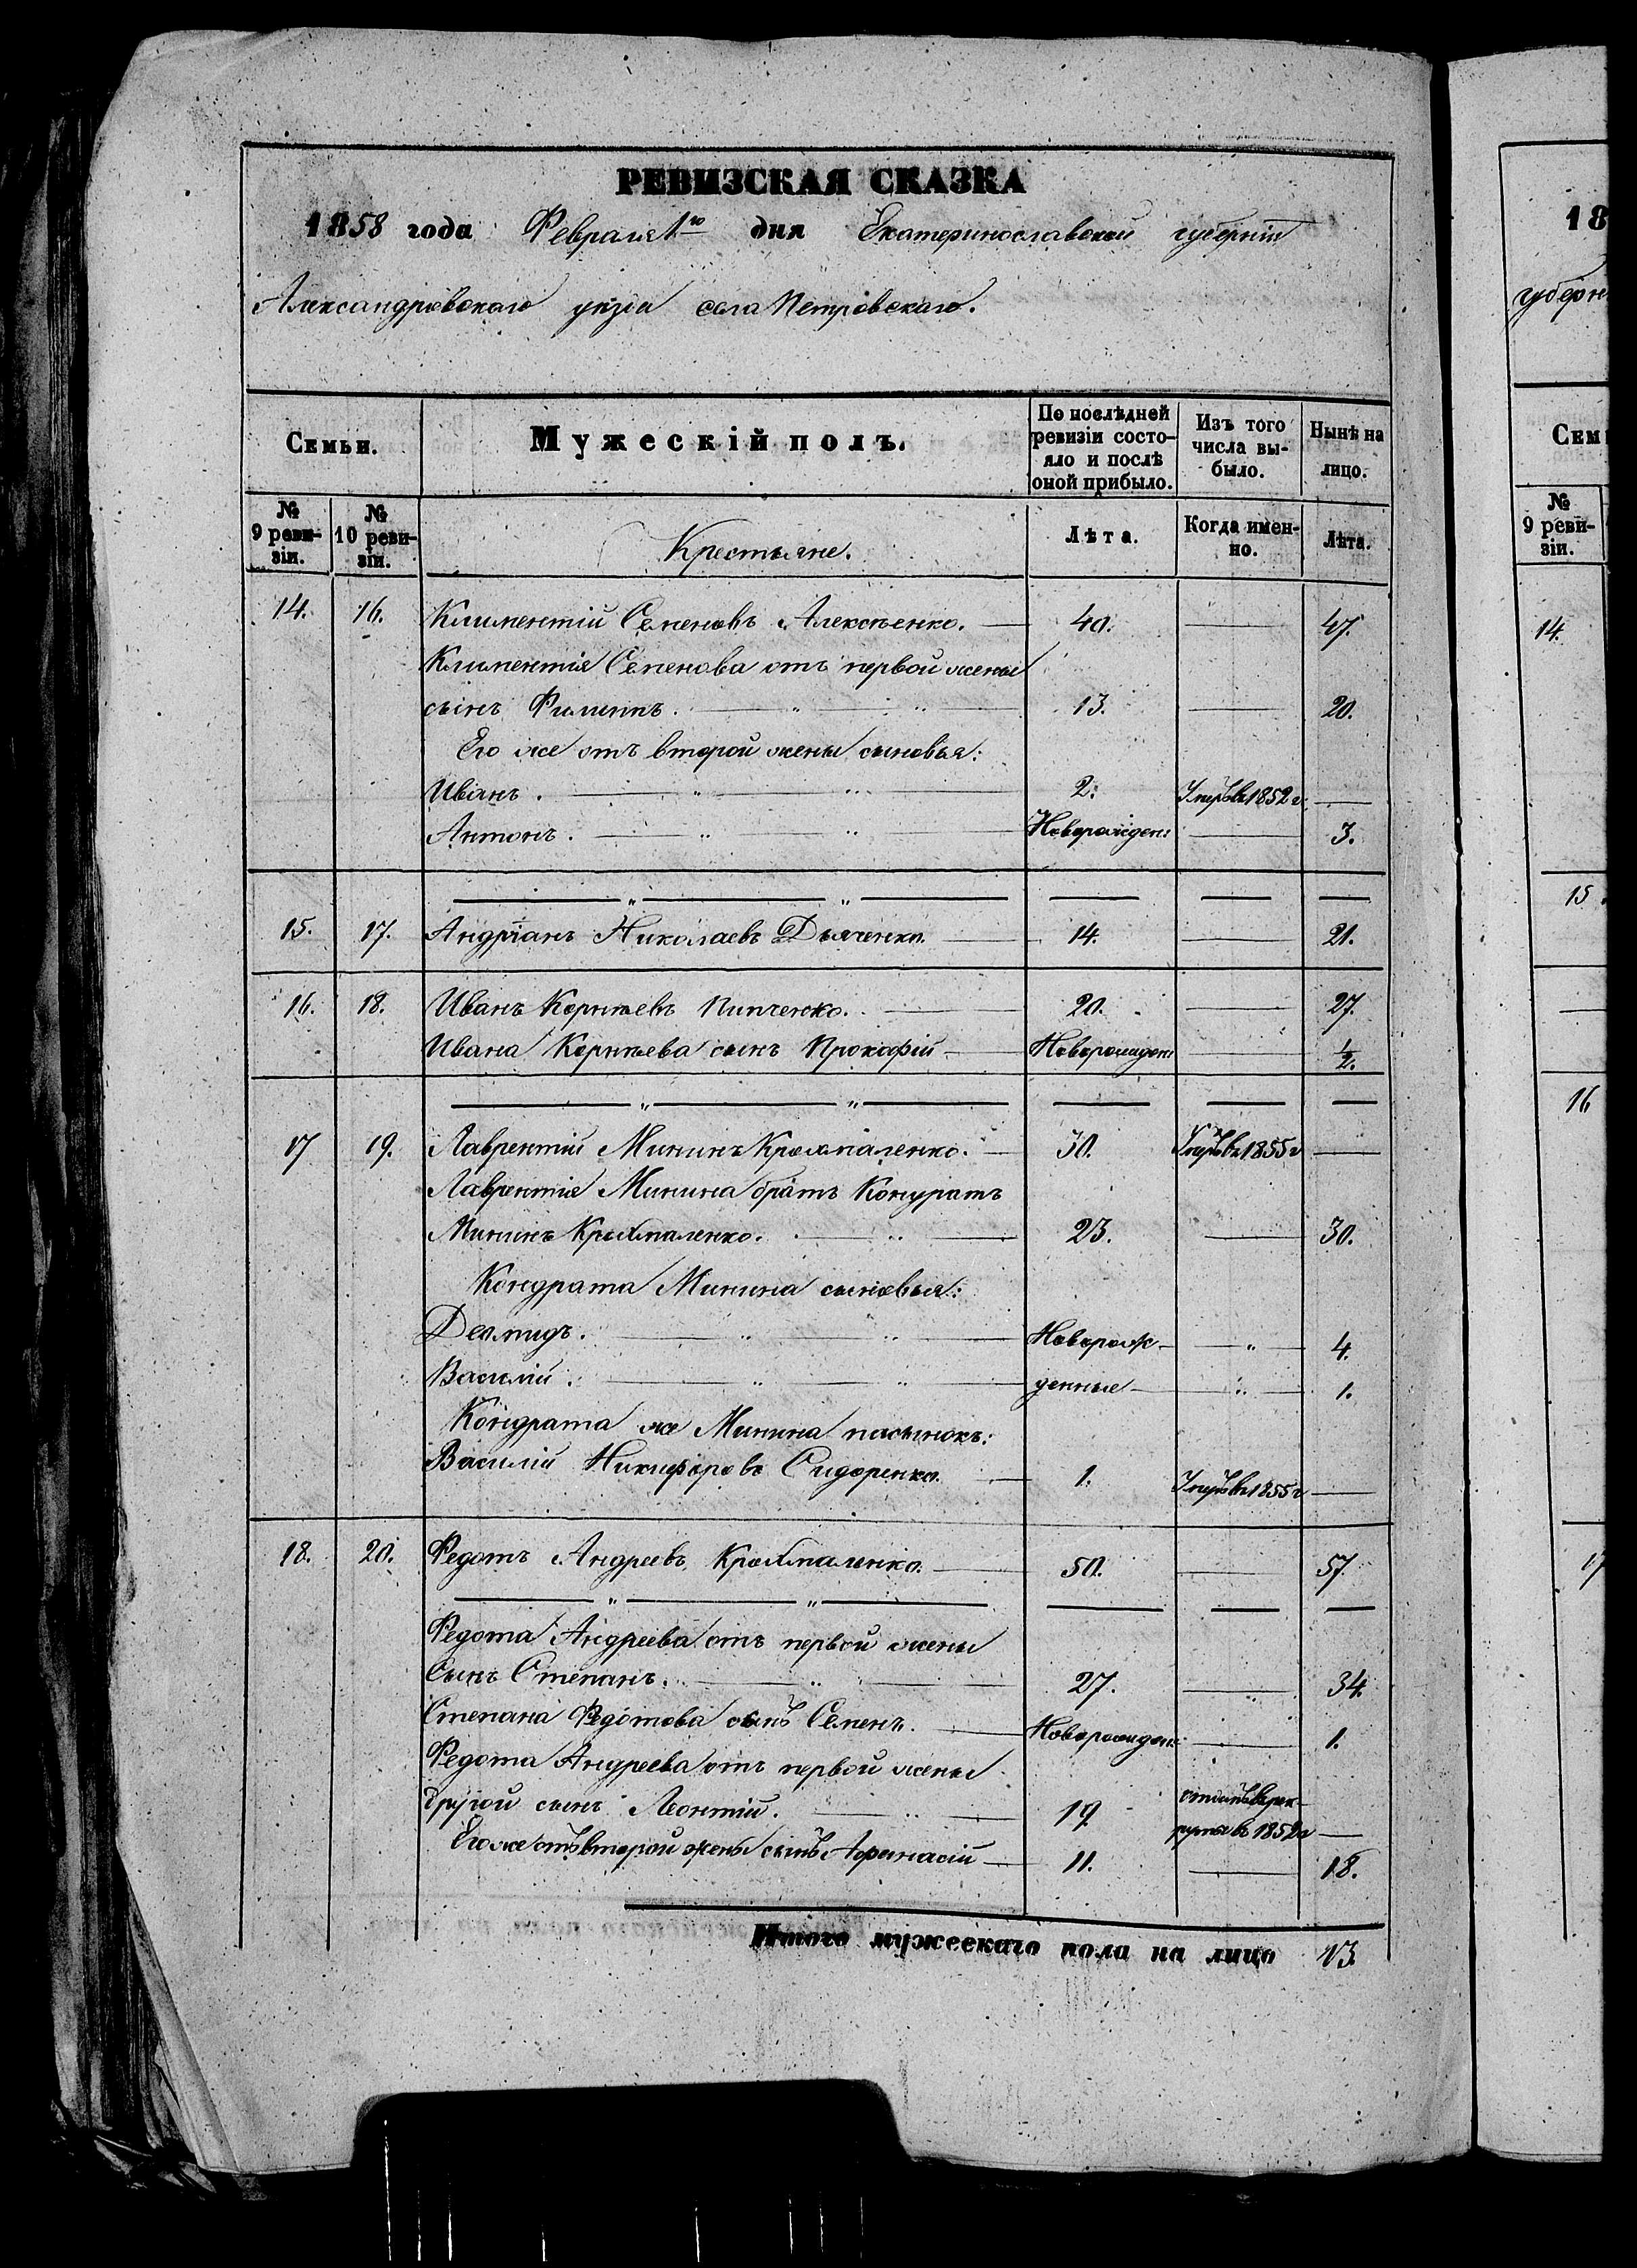 РЕВИЗСКАЯ СКАЗКА
1858 года Февраля 1го дня Екатеринославской губерніи
Александровскаго уѣзда села Петровскаго.
Семьи.
Мужескій полъ.
По послѣдней ревизіи состояло и послѣ оной прибыло.
Изъ того числа выбыло.
Нынѣ на лицо.
№ 9 ревизіи.
№ 10 ревизіи.
Крестьяне.
Лѣта.
Когда именно.
Лѣта.
14. 16. Климентій Семеновъ Алексѣенко. 40. 47.
Климентія Семенова отъ первой жены
сынъ Филиппъ. 13. 20.
Его же отъ второй жены сыновья:
Иванъ. 2. Умеръ въ 1852 г.
Антонъ. Новорожден: 3.
15. 17. Андріанъ Николаевъ Дьяченко. 14. 21.
16. 18. Иванъ Корнѣевъ Пипченко. 20. 27.
Ивана Корнѣева сынъ Прокофій Новорожден: 1/2.
17 19. Лаврентій Мининъ Крохмаленко. 30. Умеръ въ 1855 г
Лаврентія Минина братъ Кондратъ
Мининъ Крохмаленко. 23. 30.
Кондрата Минина сыновья:
Деомидъ. Новорож- 4.
Василій. денные 1.
Кондрата же Минина пасынокъ:
Василій Никифоровъ Сидоренко. 1. Умеръ въ 1855 г
18. 20. Федотъ Андреевъ Крохмаленко. 50. 57.
Федота Андреева отъ первой жены
сынъ Степанъ. 27. 34.
Степана Федотова сынъ Семенъ. Новорожден: 1.
Федота Андреева отъ первой жены
другой сынъ Леонтій. 19 отданъ в рек-
руты въ 1852 г
Его же отъ второй жены сынъ Афанасій 11. 18.
Итого мужескаго пола на лицо 13.
18
губерн
Сем
№ 9 ревизіи.
14.
15.
16
17